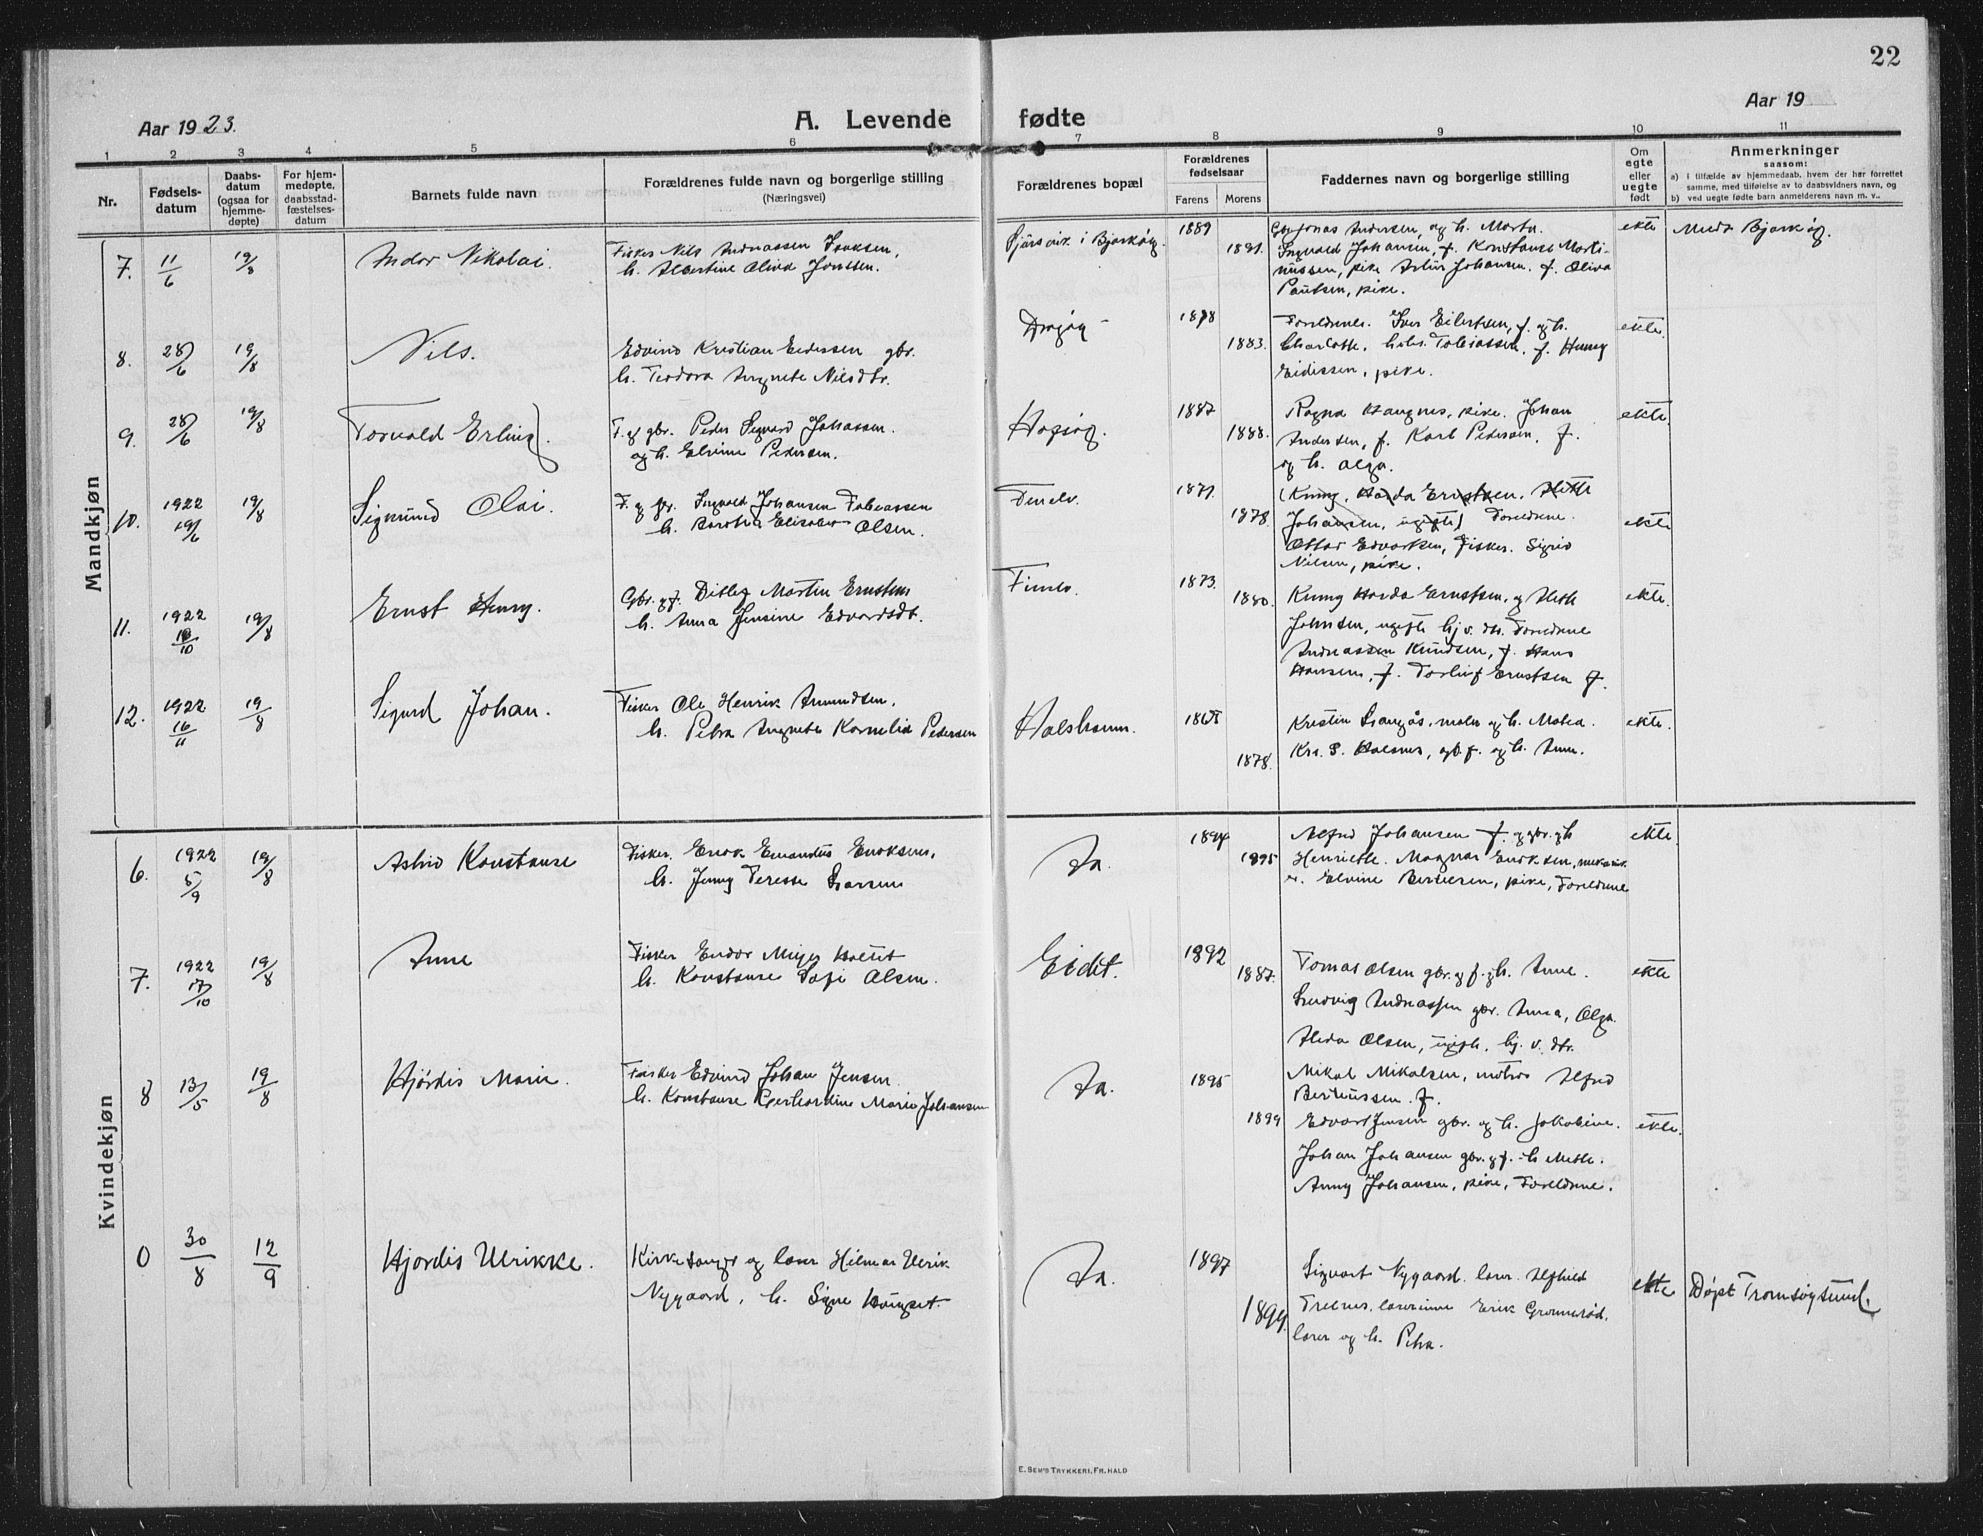 22
Aar 1923.
A. Levende fødte
Aar 19
1 2 3 4 5 6 7 8 9 10 11
Nr.
Fødsels-
datum
Daabs-
datum
(ogsaa for
hjemme-
døpte)
For hjem-
medøpte,
daabsstad-
fæstelses-
datum
Barnets fulde navn
Forældrenes fulde navn og borgerlige stilling
(Næringsvei)
Forældrenes bopæl
Forældrenes
fødselsaar
Farens Morens
Faddernes navn og borgerlige stilling
Om
egte
eller
uegte
født
Anmerkninger
saasom:
a) i tilfælde av hjemmedaab, hvem der har forrettet
samme, med tilføielse av to daabsvidners navn, og
b) ved uegte fødte barn anmelderens navn m. v..
Mandkjøn
7. 11/6 19/8 Andor Nikolai.
Fisker Nils Andreassen Isaksen,
h. Albertine Oliva Jonssen.
i Bjarkøy.
1889
1891.
Jonas Andersen, og h. Marta.
Ingvald Johansen, f. Konstanse Marti-
nussen, pike Artur Johansen. f. Oliva
Paulsen, pike.
ekte
Meds Bjarkøy.
8. 28/6 19/8 Nils.
Edvind Kristian Eidissen gbr.
h. Teodora Angnete Nilsdtr.
Drøjøy
1878
1883.
Foreldrene. Iver Eilertsen, f. og h.
Charlotte. Tobiassen. f. Henny
Eidissen, pike.
ekte.
9. 28/6 19/8 Torvald Erling.
F. og gbr. Peder Sigvard Johansen.
og h. Elvine Pedersen.
1887
1888.
Ragna Haugnes, pike. Johan
Andersen, f. Karl Pedersen, f.
og h. Olga.
ekte
10. 1922 19/6 19/8 Sigmund Olai.
F. og gbr. Ingvald Johansen Tobiassen
h. Dorothea Elisabet Olsen.
1871.
1878.
(Kinny, Harda Ernstsen. Mette
Johansen, ugifte) Foreldrene.
Ottar Edvartsen, Fisker. Sigrid
Nilsen, pike.
ekte
11. 1922 18/10 19/8 Ernst Henry.
Gbr. og f. Ditlef Martin Ernstsen
h. Anna Jensine Edvardsdt.
1873.
1880.
Kinny Harda Ernstsen, og Mette
Johnsen, ugifte hj. v. dtr. Foreldrene
Andreassen Knudsen, f. Hans
Hansen, f. Torleif Ernstsen f.
ekte.
12. 1922 16/11 19/8 Sigurd Johan.
Fisker Ole Henrik Amundsen.
h. Petra Angnete Kornelia Pedersen
1868
1878.
Kristen Langås. maler og h. Matea.
Krs. P. Halsnes, gb. f. og h. Anne.
ekte.
Kvindekjøn
6. 1922 5/9 19/8 Astrid Konstanse
Fisker. Enok Emandus Enoksen,
h. Jenny Terese Larsen
Sa.
1894
1895
Alfred Johansen f. og gbr. og h
Henriette. Magnar Enoksen,
Elvine Bertiesen, pike, Foreldrene
ekte.
7. 1922 17/10 19/8 Anne
Fisker Endor Meyer
h. Konstanse Sofie Olsen.
Eidet.
1892
1887.
Tomas Olsen gbr. og f. og h. Anne.
Ludvig Andreassen gbr. Anna, Olga.
Alida Olsen, ugift. hj. v. dtr.
ekte
8 13/5 19/8 Hjørdis Marie.
Fisker Edvind Johan Jensen
h. Konstanse Gerhardine Marie Johansen
Sa.
1895
1899
Mikal Mikalsen, Alfred
Berteussen. f.
Edvart Jensen gbr. og h. Jakobine.
Johan Johansen gbr. og f. h Mette.
Anny Johansen, pike, Foreldrene.
ekte.
0 30/8 12/9 Hjørdis Ulrikke.
Kirkesanger og lærer Hilmar Ulrik
Nygaard, h. Signe
Sa.
1897
1899.
Sigvart Nygaard. lærer. Alfhild
Trelnes, lærerinne Erik Grønnerød.
lærer og h. Petra.
ekte
Døpt Tromsøysund.
E. SEM'S TRYKKERI, FR. HALD